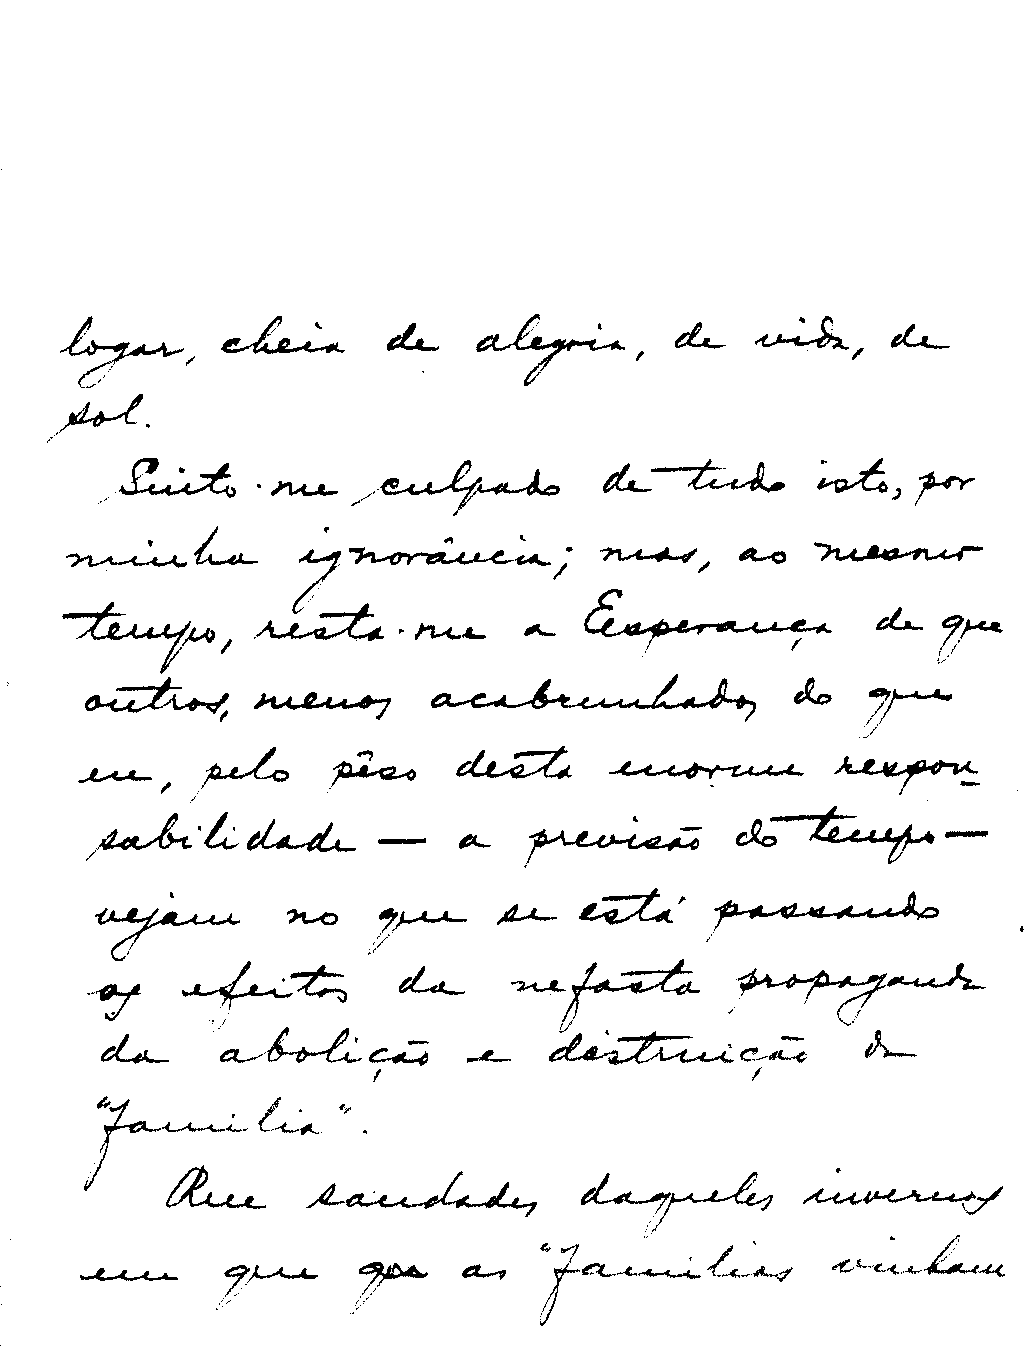 logar, cheia de alegria, de vida, de
sol.
Sinto-me culpado de tudo isto, por
minha ignorância; mas, ao mesmo
tempo, resta-me a Esperança de que
outros, menos acabrunhados do que
eu, pelo pêso desta enorme respon-
sabilidade — a previsão do tempo —
vejam no que se está passando
os efeitos da nefasta propaganda
da abolição e distruição da
"família".
Que saudades daqueles invernos
em que as "famílias vinham